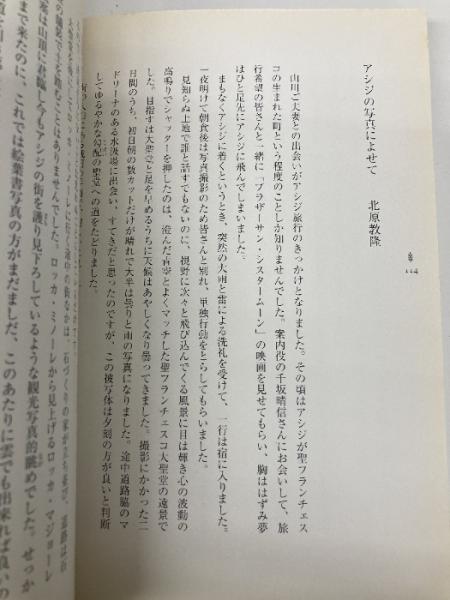 アシジの写真によせて
北原教隆
114
山川ご夫妻との出会いがアシジ旅行のきっかけとなりました。その頃はアシジが聖フランチェス
コの生まれた町という程度のことしか知りませんでした。案内役の千坂晴信さんにお会いして、旅
行希望の皆さんと一緒に「ブラザーサン・シスタームーン」の映画を見せてもらい、胸ははずみ夢
はひと足先にアシジに飛んでしまいました。
まもなくアシジに着くというとき、突然の大雨と雷による洗礼を受けて、一行は宿に入りました。
一夜明けて朝食後は写真撮影のため皆さんと別れ、単独行動をとらしてもらいました。
見知らぬ土地で誰と話すでもないのに、視野に次々と飛び込んでくる風景に目は輝き心の波動の
高鳴りでシャッターを押したのは、澄んだ青空とよくマッチした聖フランチェスコ大聖堂の遠景で
した。目指すは大聖堂と足を早めるうちに天候はあやしくなり曇ってきました。撮影にかかった二
日間のうち、初日朝の数カットだけが晴れで大半は曇りと雨の写真になりました。途中道路脇のマ
ドリーナのある水汲場に出会い、すてきだと思ったのですが、この被写体は夕刻の方が良いと判断
してゆるやかな勾配の聖堂への道をたどりました。
石づくりの家が立ち並び、道路は石
とはありませんでした。ロッカ・ミノーレから見上げるロッカ・マジョーレ
は山頂に君臨し今もアシジの街を護り見下ろしているような観光写真的眺めでした。せっか
まで来たのに、これでは絵葉書写真の方がまだましだ、このあたりに雲でも出来れば良いの